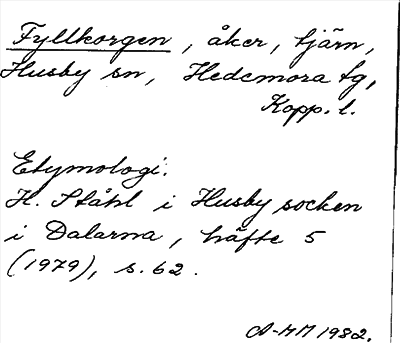 Fyllkorgen, åker, tjärn,
Husby sn, Hedemora tg,
Kopp. l.
Etymologi:
H. Ståhl i Husby socken
i Dalarna, häfte 5
(1979), s. 62.
A-MM 1982.